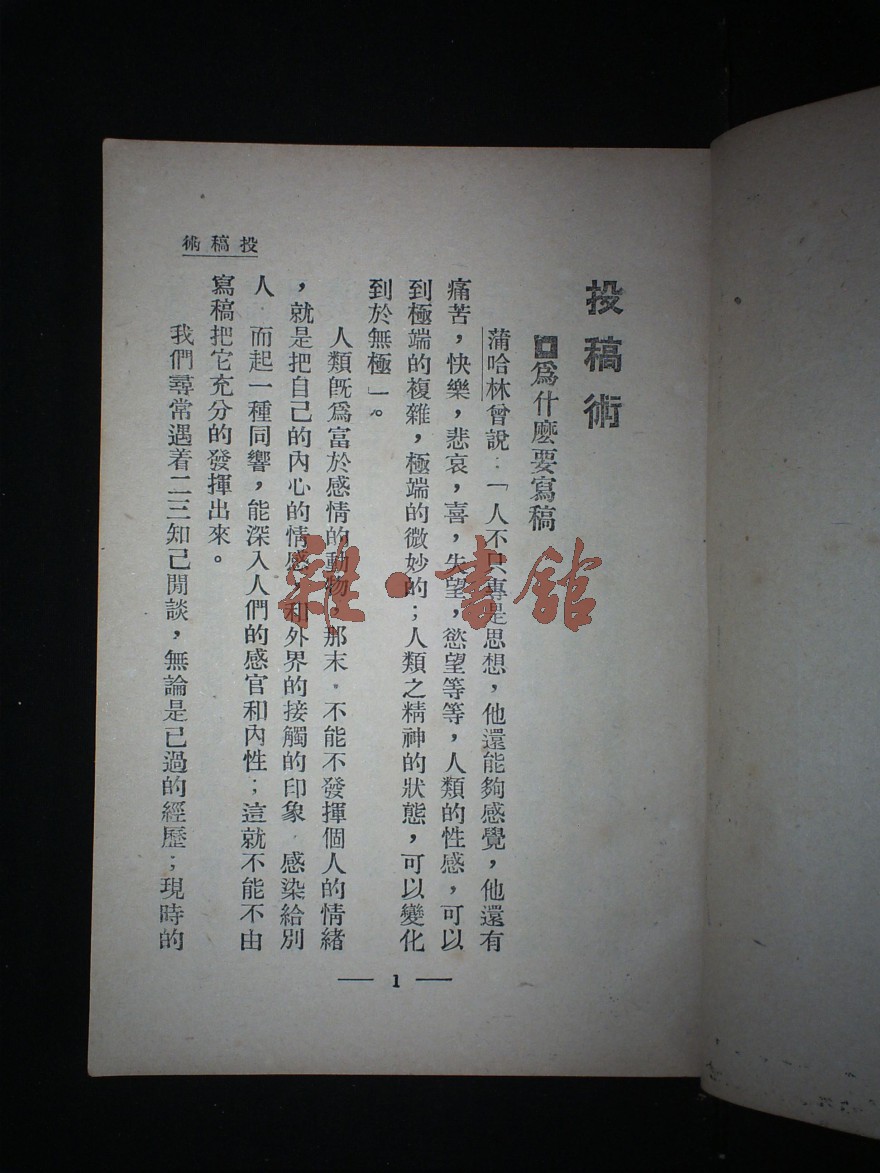 投稿術
投稿術
爲什麽要寫稿
蒲哈林曾說：「人不只專是思想，他還能夠感覺，他還有
痛苦，快樂，悲哀，喜，失望，慾望等等，人類的性感，可以
到極端的複雜，極端的微妙的；人類之精神的狀態，可以變化
到於無極」。
人類旣爲富於感情的動物，那末．不能不發揮個人的情緒
，就是把自己的內心的情感，和外界的接觸的印象．感染給別
人　而起一種同響，能深入人們的感官和內性；這就不能不由
寫稿把它充分的發揮出來。
我們尋常遇着二三知己閒談，無論是已過的經歷；現時的
— 1 —
雜·書館